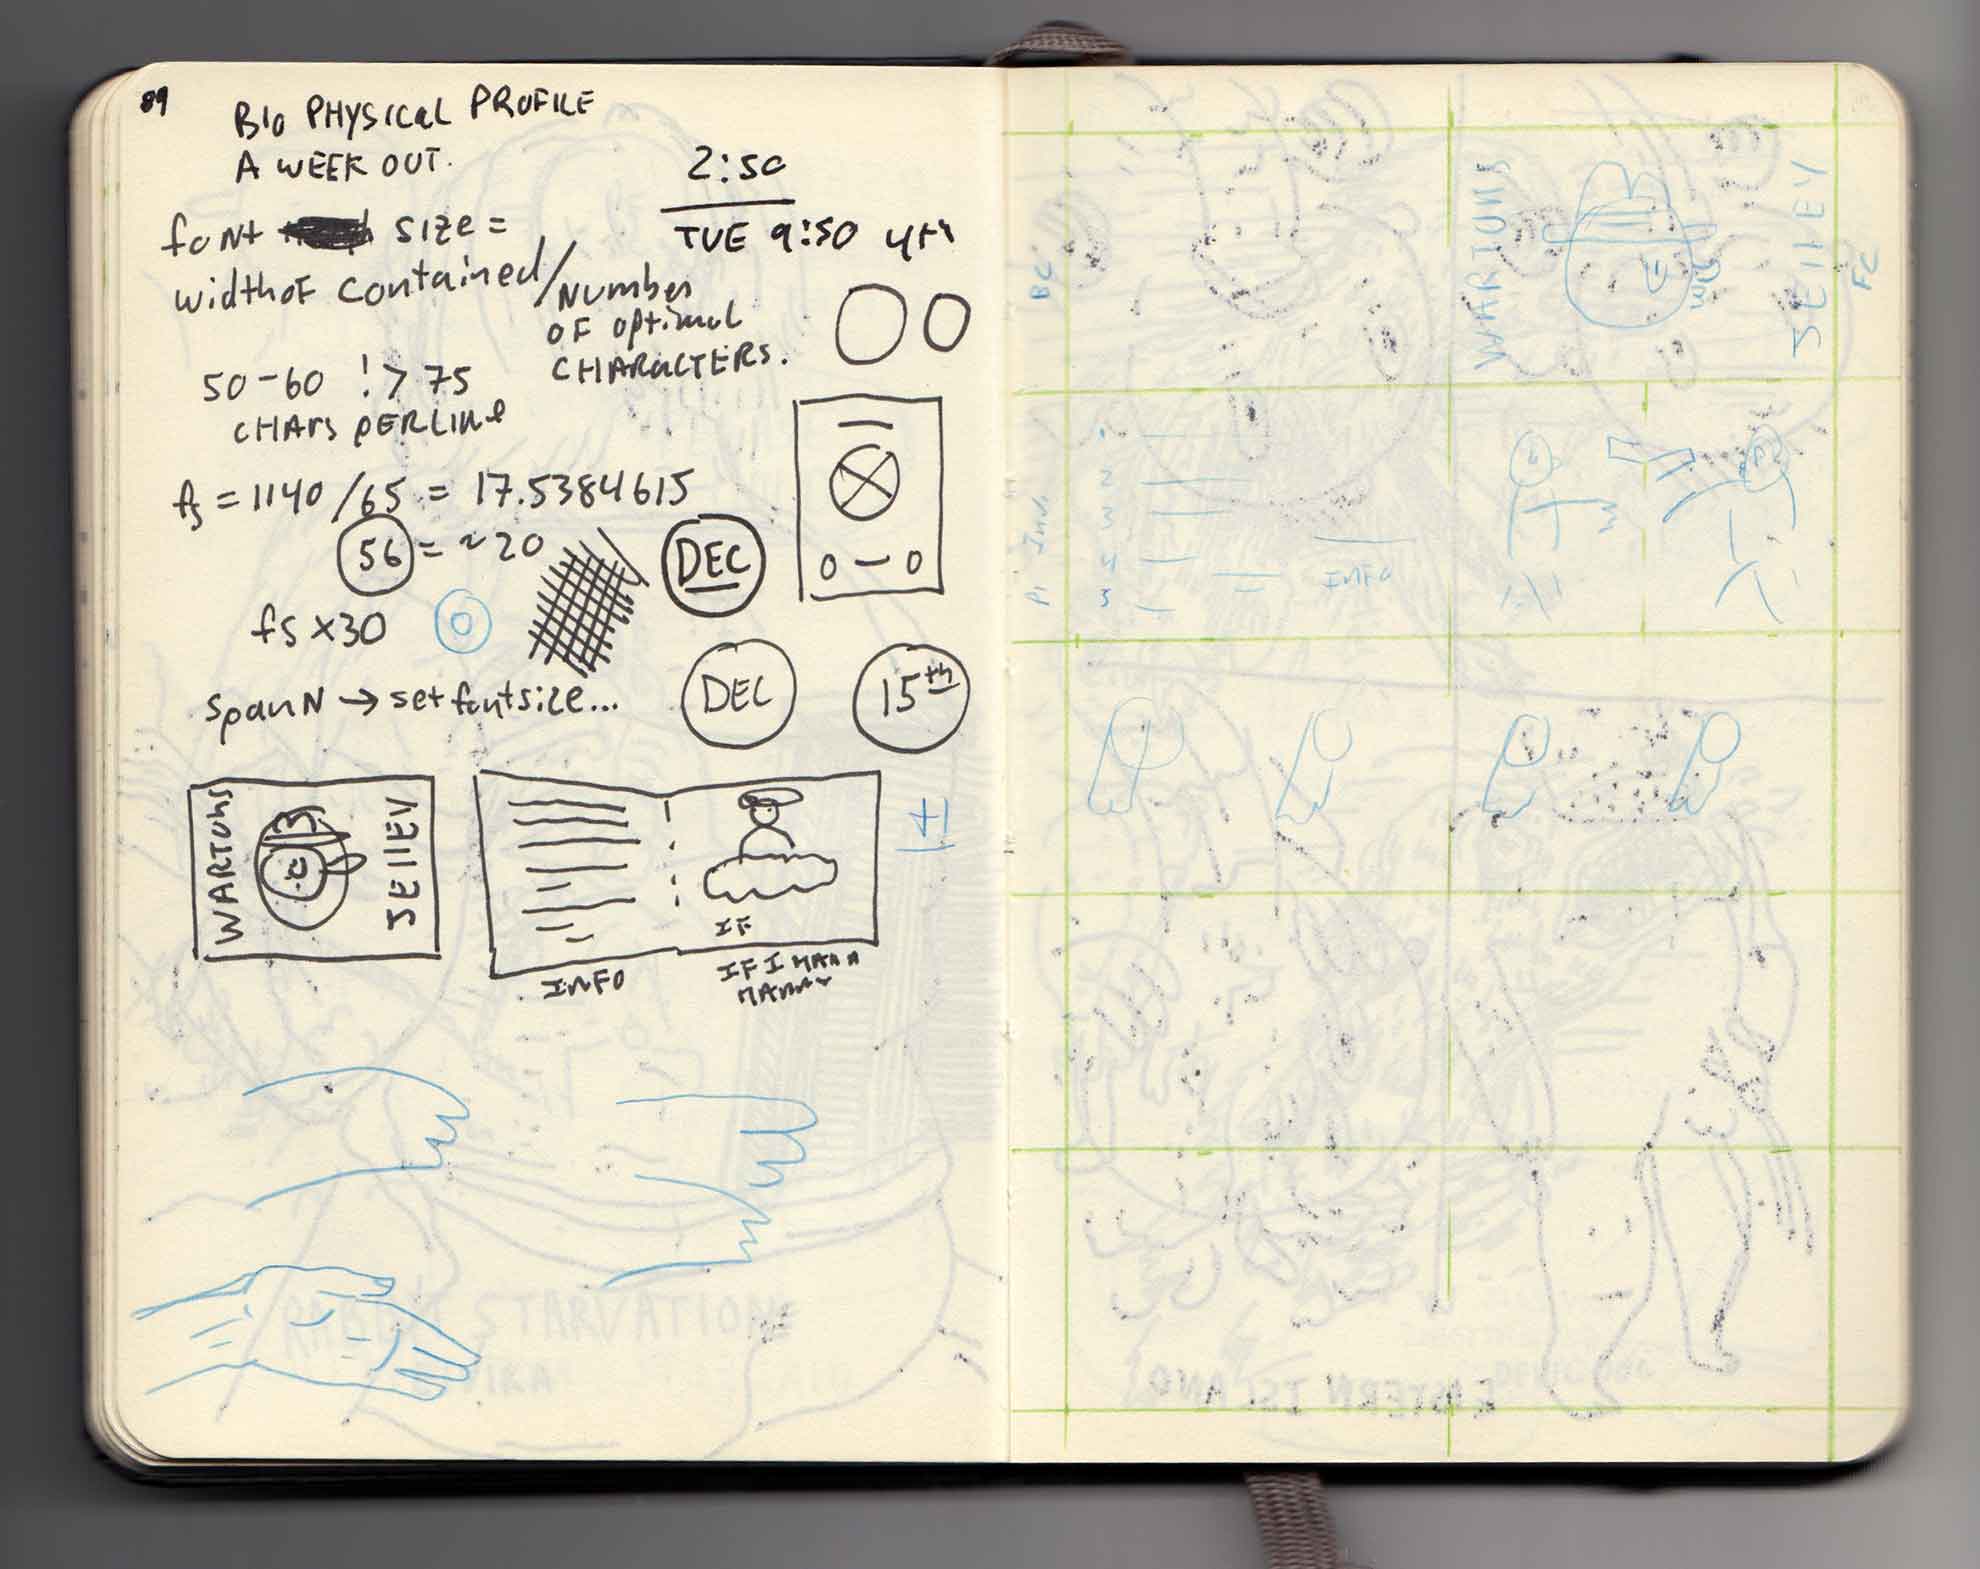 89
BIO PHYSICAL PROFILE
A WEEK OUT.
2:50
TUE 9:50
font size =
width of contained /
NUMBER
OF optimal
CHARACTERS.
50-60 !> 75
CHARS PERLINE
fs = 1140 / 65 = 17.5384615
56 = ~20
DEC
0 - 0
fs x30
DEC
15th
spanN → setfontsize...
WARTONS
JEIIEV
IF
INFO
IF I HAD A
BC
WARTONS
JEIIEV
FC
1
2
3
4
5
INFO
P1
RABBIT STARVATION
EASTERN ISLAND